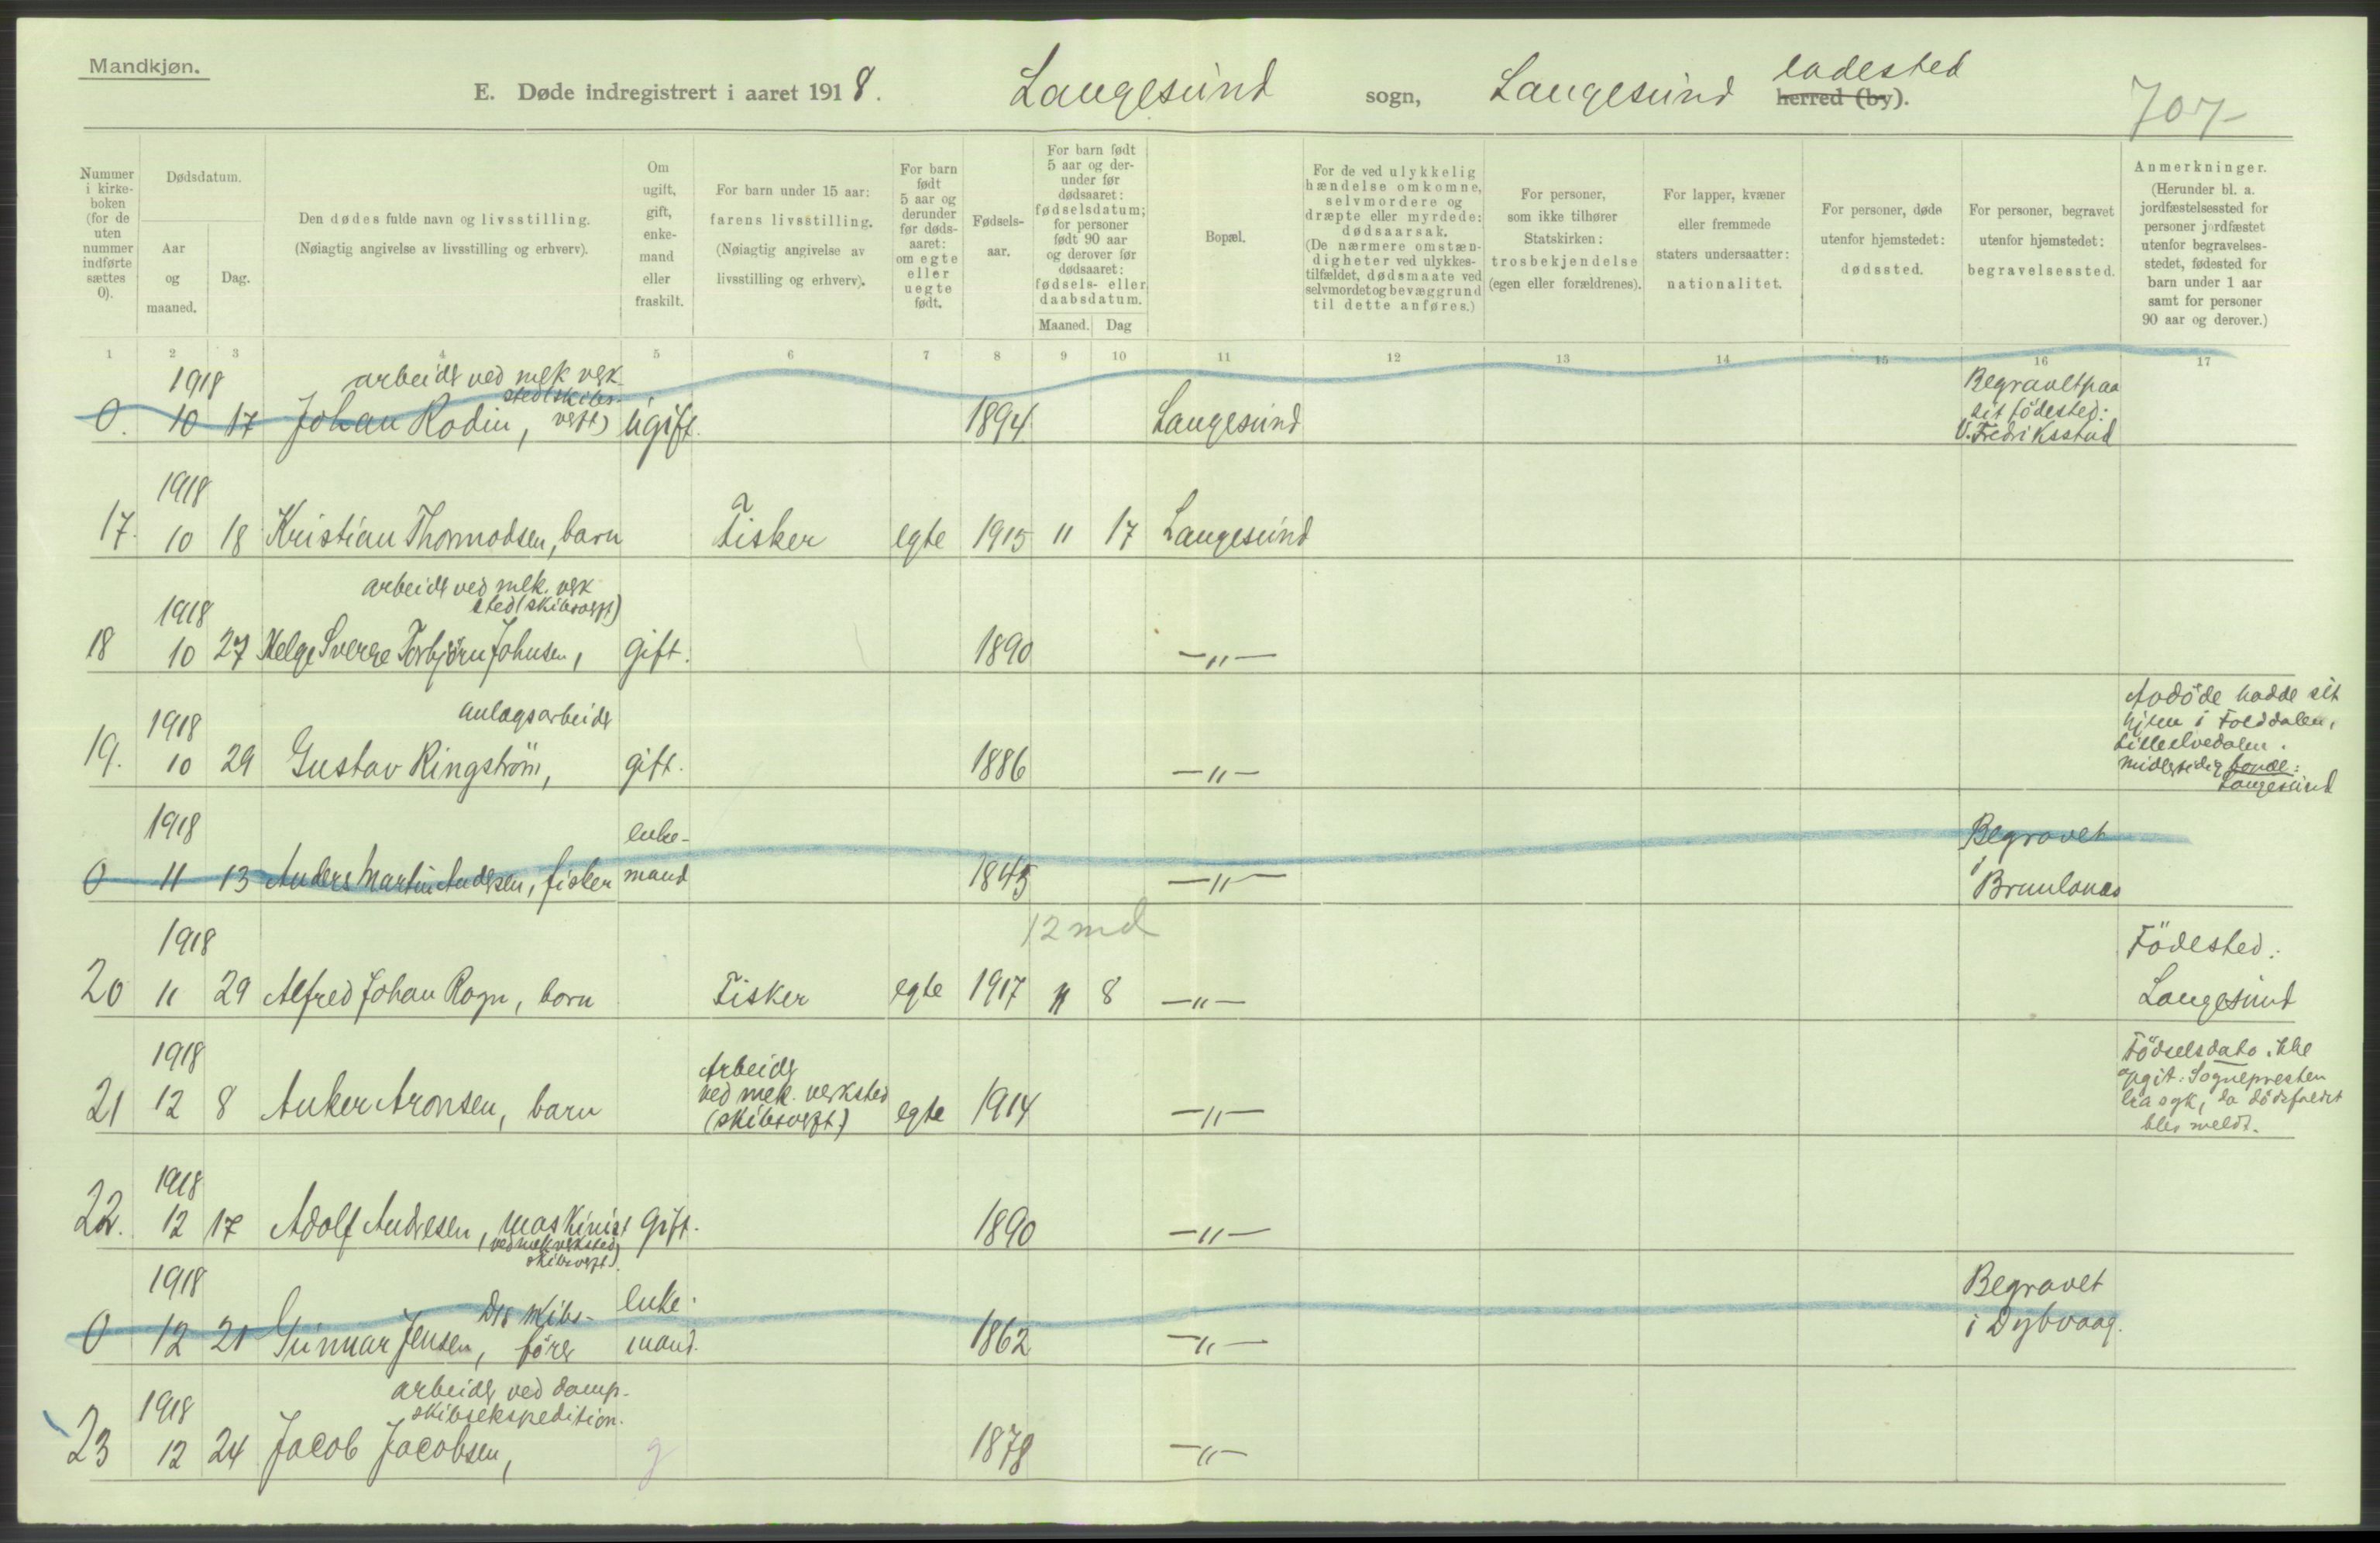 Mandkjøn.
E. Døde indregistrert i aaret 1918. Langesund sogn, Langesund ladested herred (by).
707
Nummer i kirke-boken (for de uten nummer indførte sættes 0).
Dødsdatum.
Aar og maaned.
Dag.
Den dødes fulde navn og livsstilling.
(Nøiagtig angivelse av livsstilling og erhverv).
Om ugift, gift, enke-mand eller fraskilt.
For barn under 15 aar: farens livsstilling.
(Nøiagtig angivelse av livsstilling og erhverv).
For barn født 5 aar og derunder før døds-aaret: om egte eller uegte født.
Fødsels-aar.
For barn født 5 aar og der-under før dødsaaret: fødselsdatum; for personer født 90 aar og derover før dødsaaret: fødsels- eller daabsdatum.
Maaned. Dag
Bopæl.
For de ved ulykkelig hændelse omkomne, selvmordere og dræpte eller myrdede: dødsaarsak.
(De nærmere omstæn-digheter ved ulykkes-tilfældet, dødsmaate ved selvmordet og bevæggrund til dette anføres.)
For personer, som ikke tilhører Statskirken: trosbekjendelse (egen eller forældrenes).
For lapper, kvæner eller fremmede staters undersaatter: nationalitet.
For personer, døde utenfor hjemstedet: dødssted.
For personer, begravet utenfor hjemstedet: begravelsessted.
Anmerkninger.
(Herunder bl. a. jordfæstelsessted for personer jordfæstet utenfor begravelses-stedet, fødested for barn under 1 aar samt for personer 90 aar og derover.)
1 2 3 4 5 6 7 8 9 10 11 12 13 14 15 16 17
1918 arbeider ved mek verk-sted (skibs-verft)
0. 10 17 Johan Rodin, ugift. 1894 Langesund Begravet paa sit fødested: V. Fredriksstad
1918
17. 10 18 Kristian Thormodsen, barn Fisker egte 1915 11 17 Langesund
1918 arbeider ved mek. verksted (skibsverft)
18 10 27 Helge Sverre Torbjørn Johnsen, gift. 1890 -"-
1918 anlægsarbeider
19. 10 29 Gustav Ringström, gift. 1886 -"- Avdøde hadde sit hjem i Folddalen, Lilleelvedalen. midlertidig bopæl: Langesund
1918
0 11 13 Anders Martin Andersen, fisker enke-mand 1845 -"- Begravet i Brunlanes
12 md
1918
20 11 29 Alfred Johan Rogn, barn Fisker egte 1917 11 8 -"- Födested: Langesund
1918
21 12 8 Anker Aronsen, barn Arbeider ved mek. verksted (skibsverft) egte 1914 -"- Födselsdato ikke opgit. Sognepresten laa syk, da dödsfaldet blev meldt.
1918
22. 12 17 Adolf Andresen, maskinist (ved mek verksted skibsverft). Gift. 1890 -"-
1918
0 12 21 Gunnar Jensen, skibs-förer enke-mand. 1862 -"- Begravet i Dybvaag.
1918 arbeider ved damp-skibsekspedition.
23 12 24 Jacob Jacobsen, g 1878 -"-